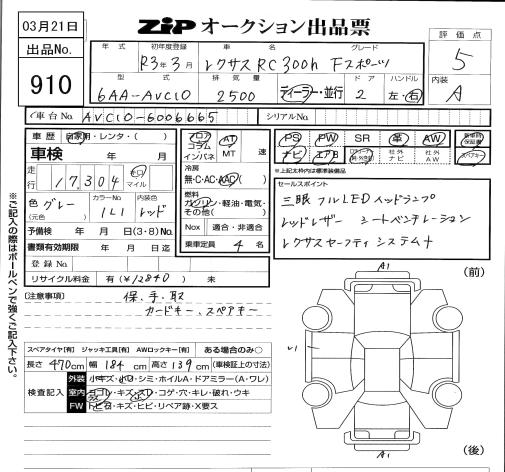 03月21日
ZiP オークション出品票
出品No.
910
年式 初年度登録 車名 グレード
R3年3月 レクサスRC300h Fスポーツ
型式 排気量 ドア ハンドル
6AA-AVC10 2500 ディーラー・並行 2 左・右
評価点
5
内装
A
車台No. AVC10-6006665 シリアルNo.
車歴 自家用・レンタ・( )
車検 年 月
走行 17,304 キロ マイル
色 グレー
(元色)
カラーNo. 1L1 レッド
予備検 年 月 日(3・8)No.
書類有効期限 年 月 日迄
登録No.
リサイクル料金 有(¥12840) 未
フロア コラム インパネ
AT MT 速
冷房
無・C・AC・AAC
燃料
ガソリン・軽油・電気・その他( )
Nox 適合・非適合
乗車定員 4 名
PS PW SR 革 AW
ナビ エアB 社外ナビ 社外AW
新車時保証書
スペアキー
※上記太枠内は標準装備品
セールスポイント
三眼フルLEDヘッドランプ
レッドレザー シートベンチレーション
レクサスセーフティシステム+
[注意事項] 保、手、取
カードキー、スペアキー
スペアタイヤ[有] ジャッキ工具[有] AWロックキー[有] ある場合のみ○
長さ 470cm 幅 184cm 高さ 139cm (車検証上の寸法)
検査記入
外装 小キズ・小凹・シミ・ホイルA・ドアミラー(A・ワレ)
室内 ヨゴレ・キズ・スレ・コゲ・穴・キレ・破れ・ウキ
FW トビ石・キズ・ヒビ・リペア跡・X要ス
※ご記入の際はボールペンで強くご記入下さい。
A1
(前)
A1
(後)